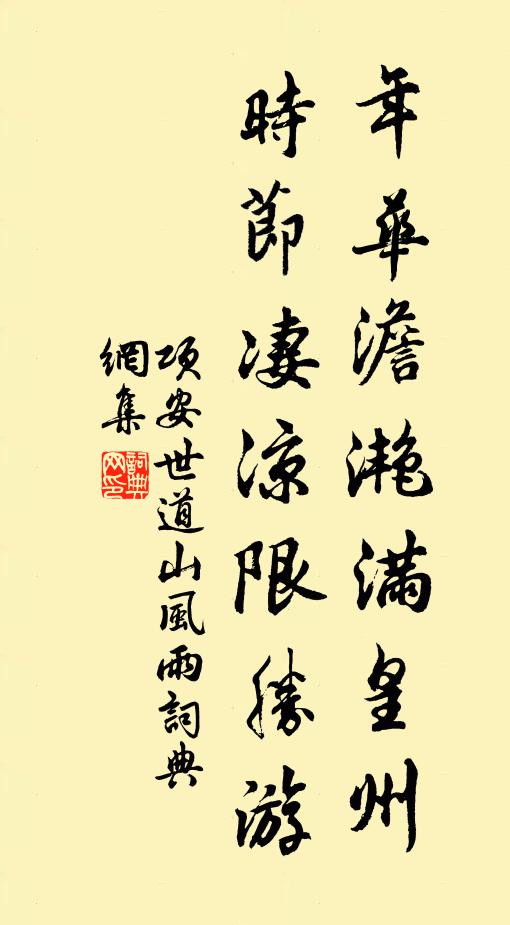 年華澹灔滿皇州
時節淒涼限勝游
項安世道山風雨詞典
網集
詞典网印